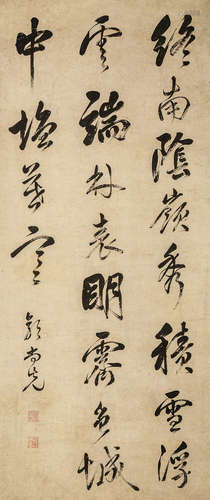 終南陰嶺秀積雪浮
雲端林表明霽色城
中增暮寒 郭尚先